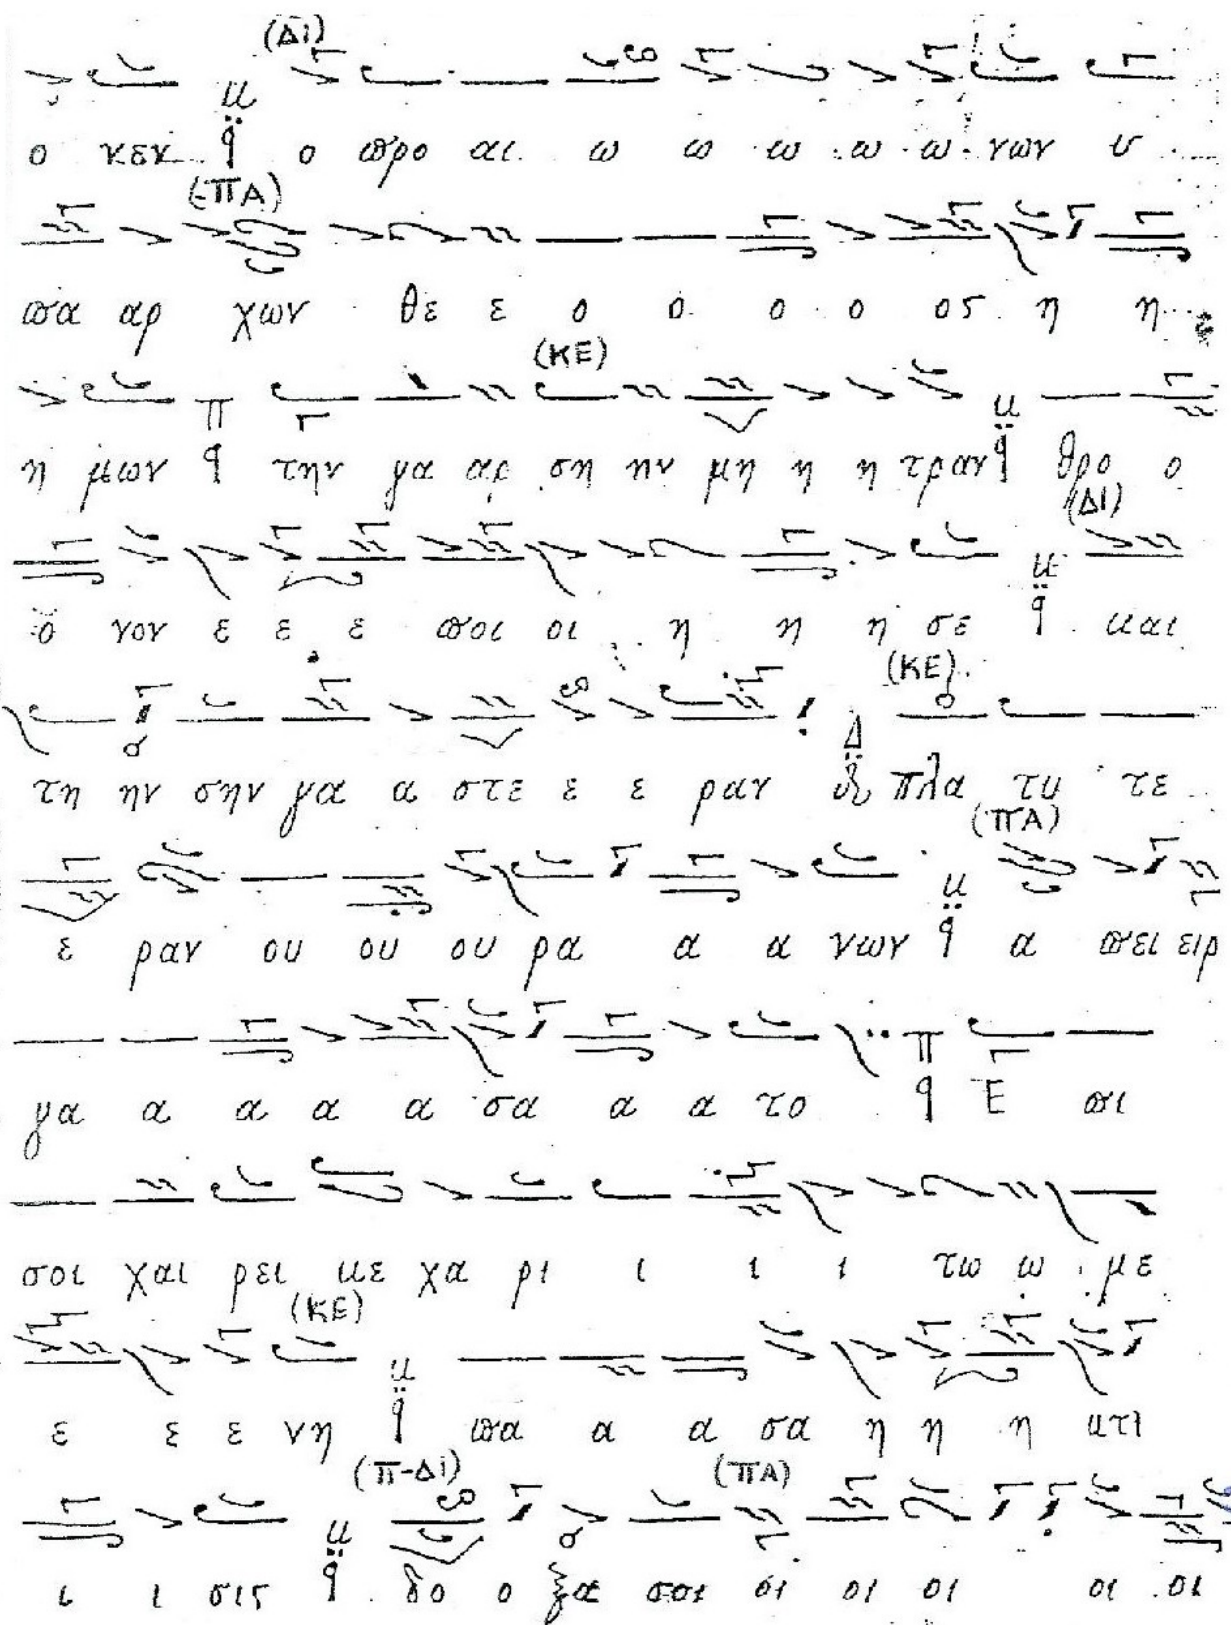 (Δι)
ο κεκ ο προ αι ω ω ω ω ω νων υ
(-ΠΑ)
πα αρ χων θε ε ο ο ο ο ος η η
(ΚΕ)
η μων την γα αρ ση ην μη η η τραν θρο ο
(Δι)
ο νον ε ε ε ποι οι η η η σε και
(ΚΕ)
τη ην σην γα α στε ε ε ραν πλα τυ τε
(ΠΑ)
ε ραν ου ου ου ρα α α νων α πει ειρ
γα α α α α σα α α το Ε πι
σοι χαι ρει κε χα ρι ι ι ι τω ω με
(ΚΕ)
ε ε ε νη πα α α σα η η η κτι
(Π-Δι) (ΠΑ)
ι ι σις δο ο ξα σοι οι οι οι οι οι